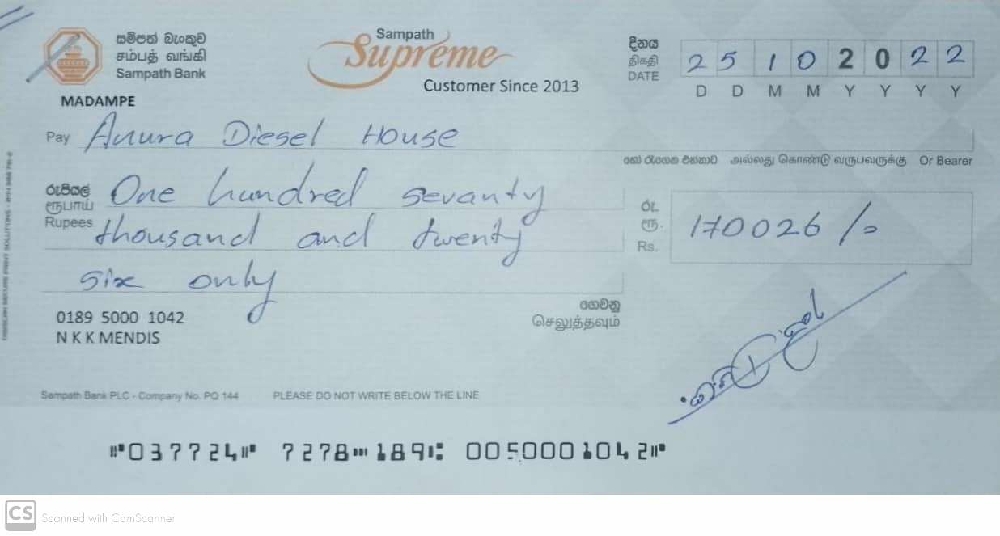 සම්පත් බැංකුව
சம்பத் வங்கி
Sampath Bank
MADAMPE
Sampath
Supreme
Customer Since 2013
දිනය
திகதி
DATE
25 10 2022
D D M M Y Y Y Y
Pay Anura Diesel House
හෝ රැගෙන එන්නාට அல்லது கொண்டு வருபவருக்கு Or Bearer
රුපියල්
ரூபாய்
Rupees
One hundred sevanty
thousand and twenty
six only
රු.
ரூ.
Rs.
170026/=
0189 5000 1042
N K K MENDIS
ගෙවනු
செலுத்தவும்
Sampath Bank PLC - Company No. PQ 144 PLEASE DO NOT WRITE BELOW THE LINE
⑈037724⑈ 7278⑉189⑆ 0050001042⑈
CS Scanned with CamScanner